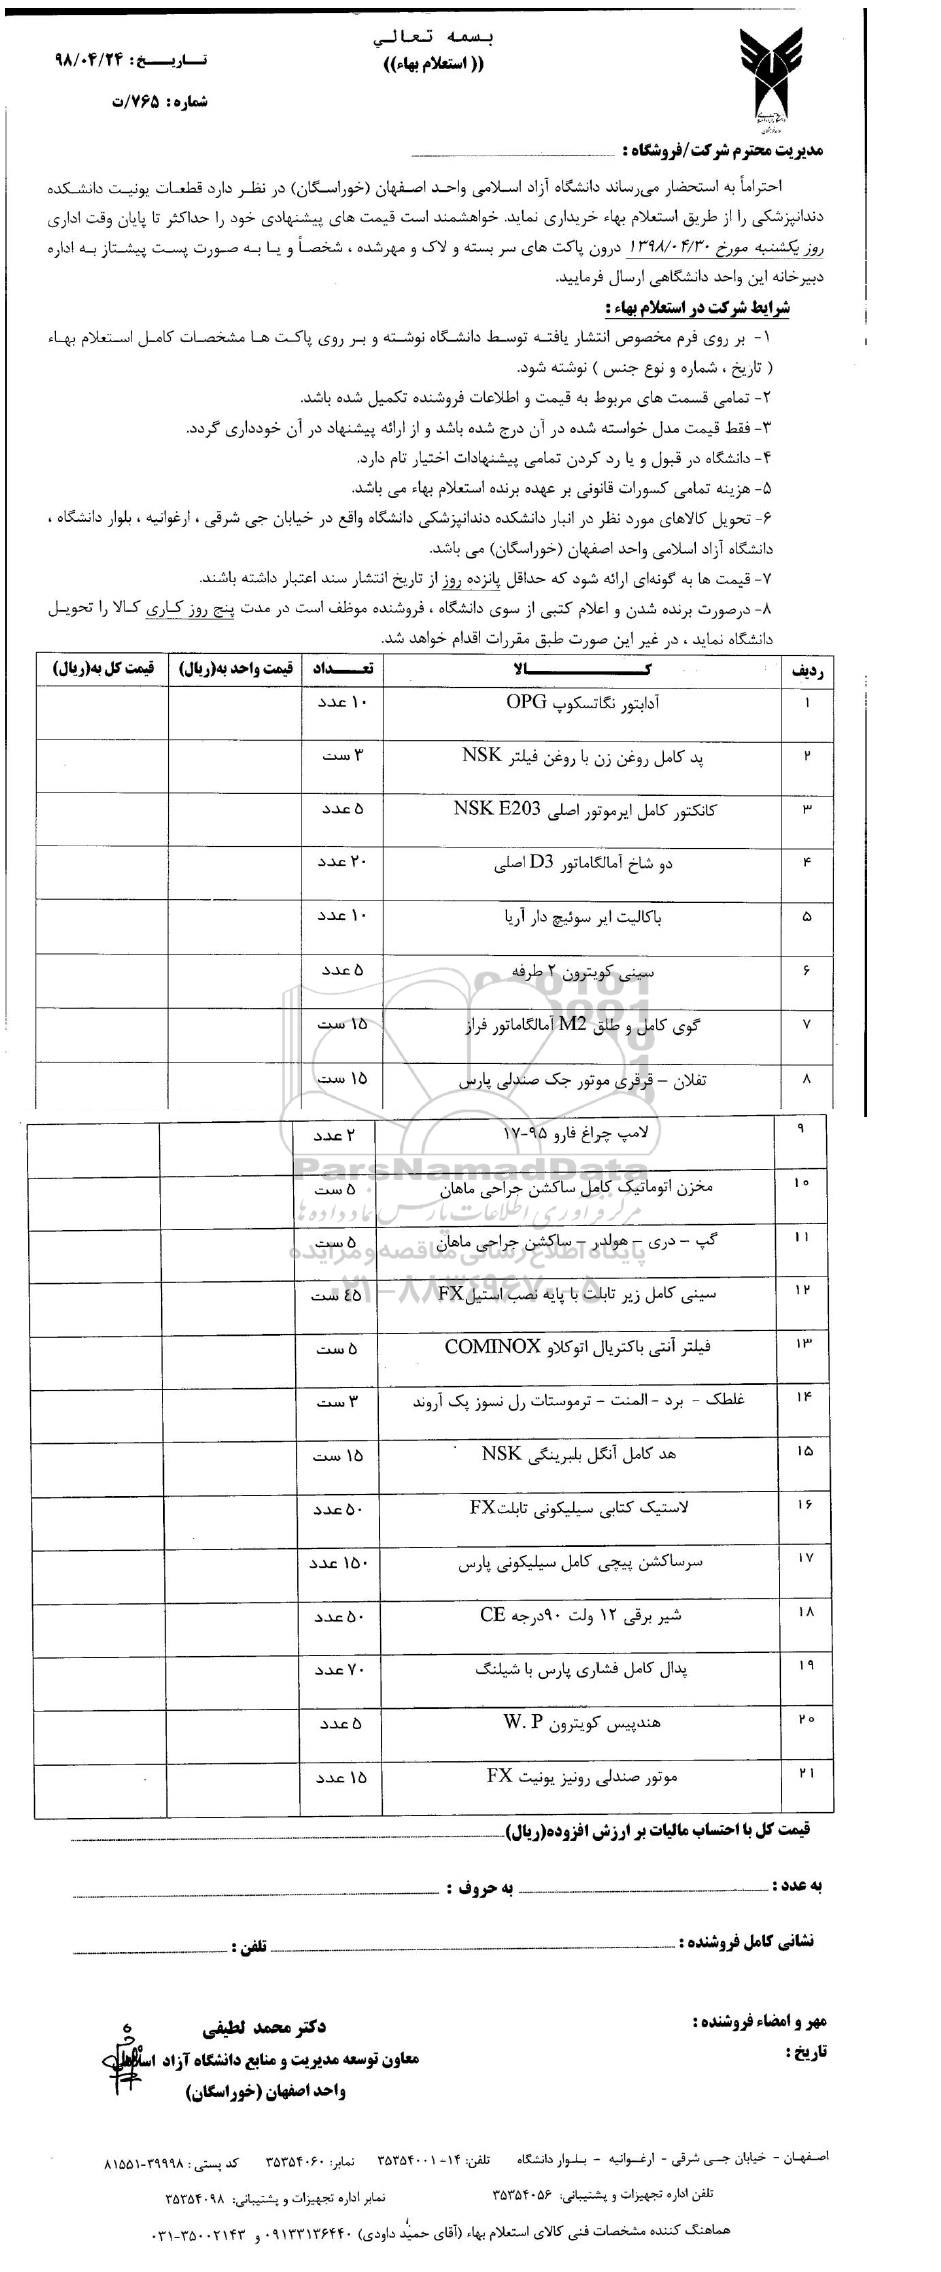 بسمه تعالي
(( استعلام بهاء))
تاریخ: ۹۸/۰۴/۲۴
شماره: ۷۶۵/ت
مدیریت محترم شرکت/فروشگاه :
احتراماً به استحضار می‌رساند دانشگاه آزاد اسلامی واحد اصفهان (خوراسگان) در نظر دارد قطعات یونیت دانشکده
دندانپزشکی را از طریق استعلام بهاء خریداری نماید. خواهشمند است قیمت های پیشنهادی خود را حداکثر تا پایان وقت اداری
روز یکشنبه مورخ ۱۳۹۸/۰۴/۳۰ درون پاکت های سر بسته و لاک و مهرشده ، شخصاً و یا به صورت پست پیشتاز به اداره
دبیرخانه این واحد دانشگاهی ارسال فرمایید.
شرایط شرکت در استعلام بهاء :
۱- بر روی فرم مخصوص انتشار یافته توسط دانشگاه نوشته و بر روی پاکت ها مشخصات کامل استعلام بهاء
( تاریخ ، شماره و نوع جنس ) نوشته شود.
۲- تمامی قسمت های مربوط به قیمت و اطلاعات فروشنده تکمیل شده باشد.
۳- فقط قیمت مدل خواسته شده در آن درج شده باشد و از ارائه پیشنهاد در آن خودداری گردد.
۴- دانشگاه در قبول و یا رد کردن تمامی پیشنهادات اختیار تام دارد.
۵- هزینه تمامی کسورات قانونی بر عهده برنده استعلام بهاء می باشد.
۶- تحویل کالاهای مورد نظر در انبار دانشکده دندانپزشکی دانشگاه واقع در خیابان جی شرقی ، ارغوانیه ، بلوار دانشگاه ،
دانشگاه آزاد اسلامی واحد اصفهان (خوراسگان) می باشد.
۷- قیمت ها به گونه‌ای ارائه شود که حداقل پانزده روز از تاریخ انتشار سند اعتبار داشته باشند.
۸- درصورت برنده شدن و اعلام کتبی از سوی دانشگاه ، فروشنده موظف است در مدت پنج روز کاری کالا را تحویل
دانشگاه نماید ، در غیر این صورت طبق مقررات اقدام خواهد شد.
ردیف کالا تعداد قیمت واحد به(ریال) قیمت کل به(ریال)
۱ آدابتور نگاتسکوپ OPG ۱۰ عدد
۲ پد کامل روغن زن با روغن فیلتر NSK ۳ ست
۳ کانکتور کامل ایرموتور اصلی NSK E203 ۵ عدد
۴ دو شاخ آمالگاماتور D3 اصلی ۲۰ عدد
۵ باکالیت ایر سوئیچ دار آریا ۱۰ عدد
۶ سینی کویترون ۲ طرفه ۵ عدد
۷ گوی کامل و طلق M2 آمالگاماتور فراز ۱۵ ست
۸ تفلان – قرقری موتور جک صندلی پارس ۱۵ ست
۹ لامپ چراغ فارو ۹۵-۱۷ ۲ عدد
ParsNamadData
۱۰ مخزن اتوماتیک کامل ساکشن جراحی ماهان ۵ ست
مرکز فرآوری اطلاعات پارس نماد داده ها
۱۱ گپ – دری – هولدر – ساکشن جراحی ماهان ۵ ست
پایگاه اطلاع رسانی مناقصه و مزایده
۱۲ سینی کامل زیر تابلت با پایه نصب استیل FX ٤٥ ست
۰۲۱-۸۸۳۴۹۶۷۰-۵
۱۳ فیلتر آنتی باکتریال اتوکلاو COMINOX ۵ ست
۱۴ غلطک – برد – المنت – ترموستات رل نسوز پک آروند ۳ ست
۱۵ هد کامل آنگل بلبرینگی NSK ۱۵ ست
۱۶ لاستیک کتابی سیلیکونی تابلت FX ۵۰ عدد
۱۷ سرساکشن پیچی کامل سیلیکونی پارس ۱۵۰ عدد
۱۸ شیر برقی ۱۲ ولت ۹۰درجه CE ۵۰ عدد
۱۹ پدال کامل فشاری پارس با شیلنگ ۷۰ عدد
۲۰ هندپیس کویترون W. P ۵ عدد
۲۱ موتور صندلی رونیز یونیت FX ۱۵ عدد
قیمت کل با احتساب مالیات بر ارزش افزوده(ریال)
به عدد : به حروف :
نشانی کامل فروشنده : تلفن :
مهر و امضاء فروشنده :
تاریخ :
دکتر محمد لطیفی
معاون توسعه مدیریت و منابع دانشگاه آزاد اسلامی
واحد اصفهان (خوراسگان)
اصفهان – خیابان جی شرقی – ارغوانیه – بلوار دانشگاه تلفن: ۱۴-۳۵۳۵۴۰۰۱ نمابر: ۳۵۳۵۴۰۶۰ کد پستی : ۳۹۹۹۸-۸۱۵۵۱
تلفن اداره تجهیزات و پشتیبانی: ۳۵۳۵۴۰۵۶ نمابر اداره تجهیزات و پشتیبانی: ۳۵۳۵۴۰۹۸
هماهنگ کننده مشخصات فنی کالای استعلام بهاء (آقای حمید داودی) ۰۹۱۳۳۱۳۶۴۴۰ و ۳۵۰۰۲۱۴۳-۰۳۱